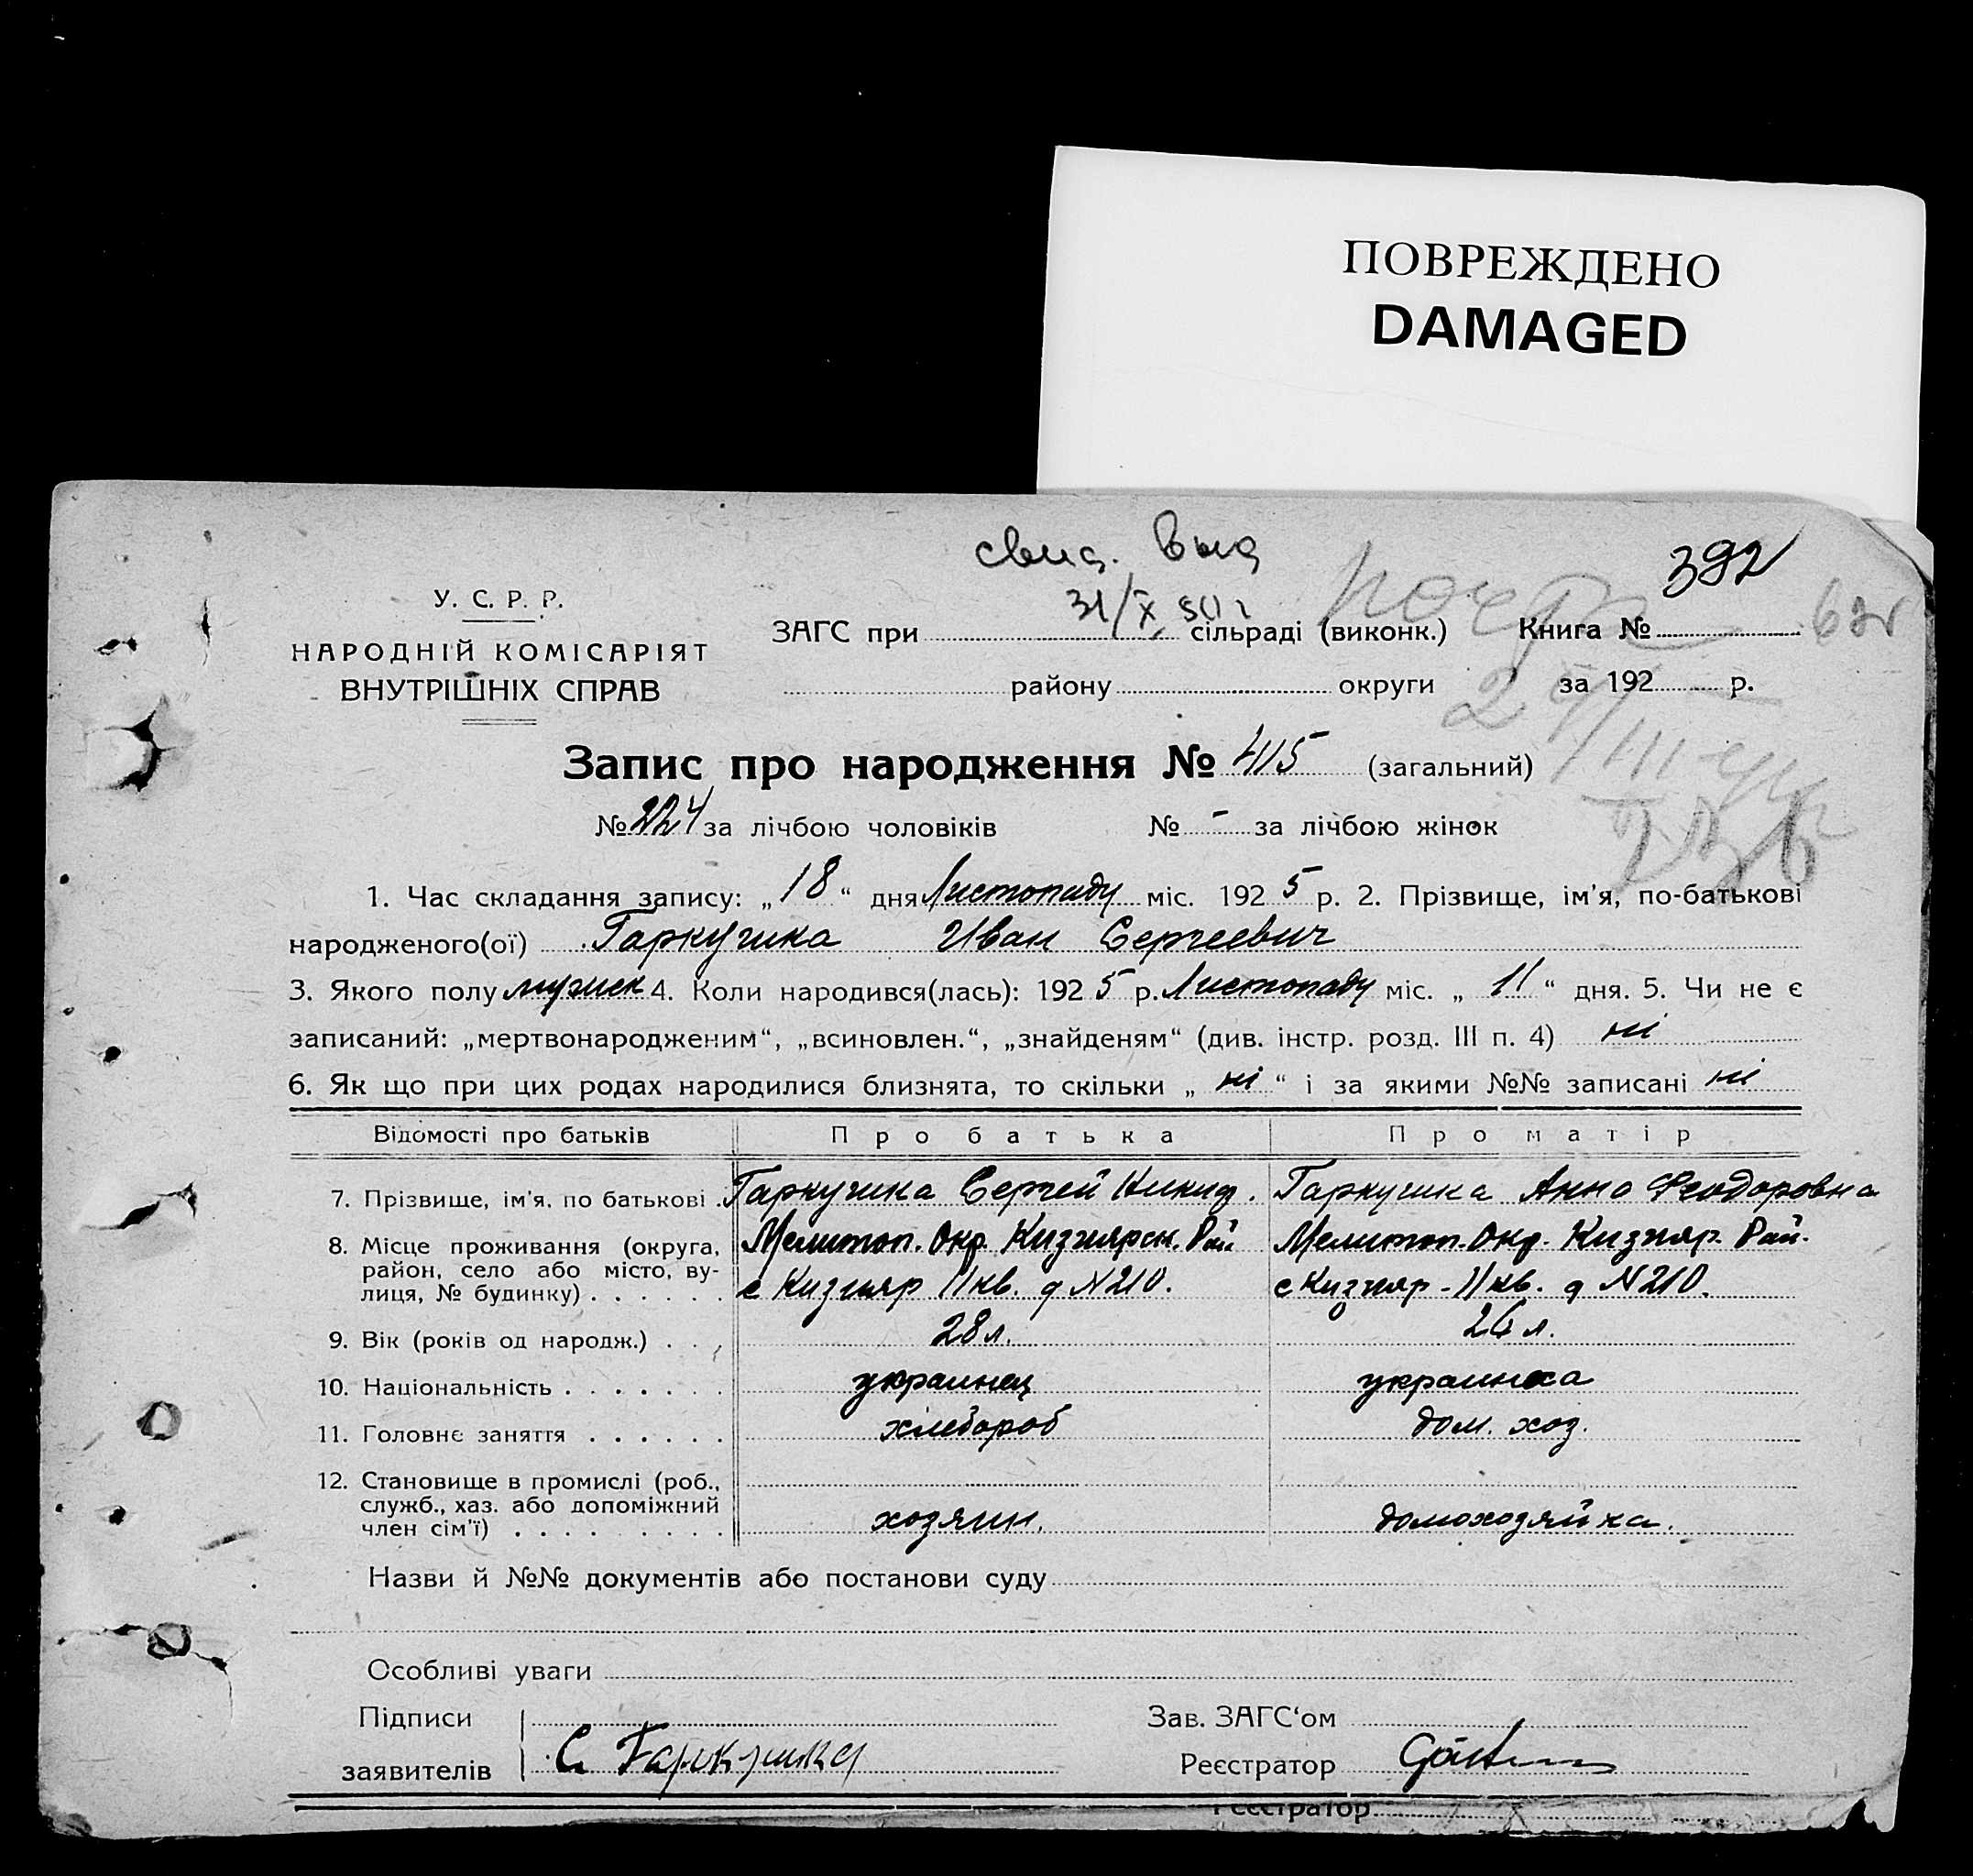 ПОВРЕЖДЕНО
DAMAGED
свид. выд
31/X 50 г
392
У. С. Р. Р.
НАРОДНІЙ КОМІСАРІЯТ
ВНУТРІШНІХ СПРАВ
ЗАГС при сільраді (виконк.) Книга №
району округи за 192 р.
Запис про народження № 415 (загальний)
№ 224 за лічбою чоловіків № - за лічбою жінок
1. Час складання запису: „18“ дня Листопаду міс. 1925 р. 2. Прізвище, ім'я, по-батькові
народженого(ої) Гаркушка Иван Сергеевич
3. Якого полу мужеск 4. Коли народився(лась): 1925 р. Листопаду міс. „11“ дня. 5. Чи не є
записаний: „мертвонародженим“, „всиновлен.“, „знайденям“ (див. інстр. розд. III п. 4) ні
6. Як що при цих родах народилися близнята, то скільки „ні“ і за якими №№ записані ні
Відомості про батьків Про батька Про матір
7. Прізвище, ім'я, по батькові . Гаркушка Сергей Никид. Гаркушка Анна Феодоровна
8. Місце проживання (округа, Мелитоп. Окр. Кизиярск. Рай Мелитоп. Окр. Кизияр. Рай.
район, село або місто, ву-
лиця, № будинку) . . . . . . с Кизияр II кв. д N 210. с Кизияр - II кв. д N 210.
9. Вік (років од народж.) . . . 28 л. 26 л.
10. Національність . . . . . . . украинец украинка
11. Головне заняття . . . . . . хлебороб дом. хоз.
12. Становище в промислі (роб.,
служб., хаз. або допоміжний
член сім'ї) . . . . . . . . . хозяин. домохозяйка.
Назви й №№ документів або постанови суду
Особливі уваги
Підписи Зав. ЗАГС‘ом
заявителів С. Гаркушка Реєстратор
Реєстратор